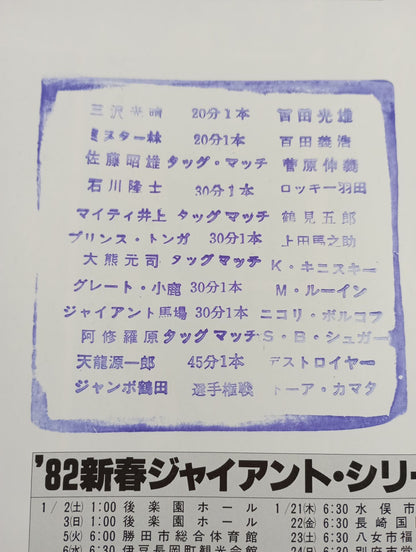 三沢光晴 20分1本 冨田光雄
ミスター林 20分1本 百田義浩
佐藤昭雄 タッグ・マッチ 菅原伸義
石川隆士 30分1本 ロッキー羽田
マイティ井上 タッグマッチ 鶴見五郎
プリンス・トンガ 30分1本 上田馬之助
大熊元司 タッグマッチ K・キニスキー
グレート・小鹿 30分1本 M・ルーイン
ジャイアント馬場 30分1本 ニコリ・ボルコフ
阿修羅原 タッグマッチ S・B・シュガー
天龍源一郎 45分1本 デストロイヤー
ジャンボ鶴田 選手権戦 トーア・カマタ
'82新春ジャイアント・シリ
1/2(土) 1:00 後楽園ホール
3(日) 1:00 後楽園ホール
5(火) 6:00 勝田市総合体育館
6(水) 6:30 伊豆長岡町観光会館
1/21(木) 6:30 水俣市
22(金) 6:30 長崎国
23(土) 6:30 八女市福